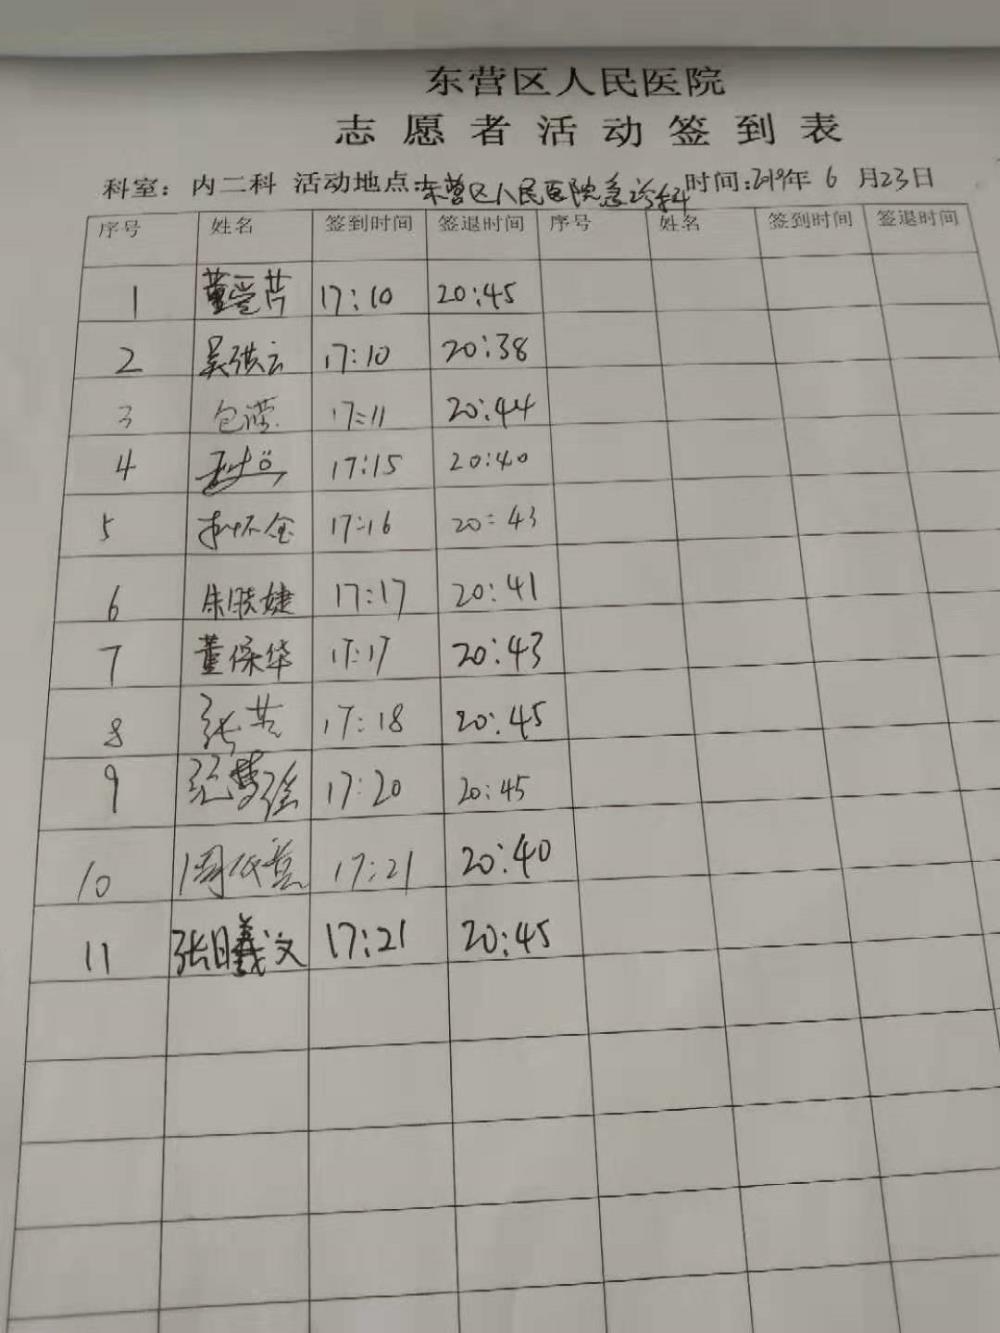 东营区人民医院
志愿者活动签到表
科室：内二科 活动地点：东营区人民医院急诊科 时间：2019年6月23日
序号 姓名 签到时间 签退时间 序号 姓名 签到时间 签退时间
1 17:10 20:45
2 17:10 20:38
3 17:11 20:44
4 17:15 20:40
5 17:16 20:43
6 17:17 20:41
7 董保华 17:17 20:43
8 17:18 20:45
9 17:20 20:45
10 17:21 20:40
11 张曦文 17:21 20:45